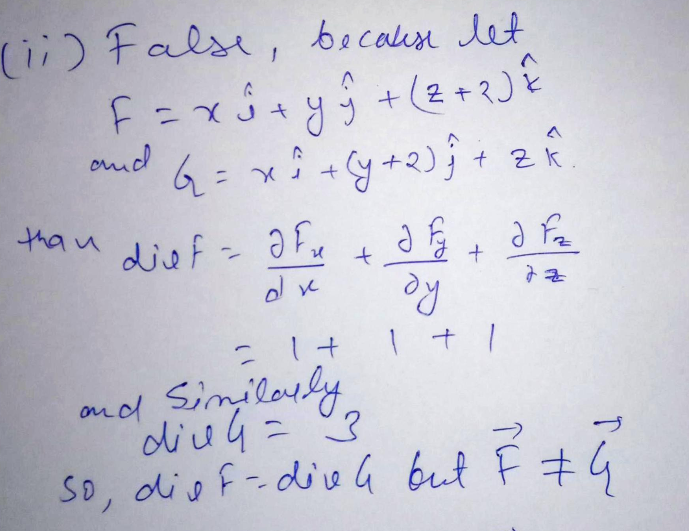 (ii) False, because let
F = x ĵ + y ĵ + (z+2) k̂
and G = x î + (y+2) ĵ + z k̂.
than div F = ∂Fx/dx + ∂Fy/∂y + ∂Fz/∂z
= 1 + 1 + 1
and Similarly
div G = 3
so, div F = div G but F⃗ ≠ G⃗